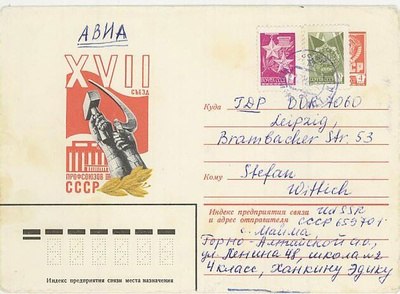 АВИА
XVII
СЪЕЗД
ПРОФСОЮЗОВ
СССР
Куда ГДР DDR 7060
Leipzig,
Brambacher Str. 53
Кому Stefan
Wittich
Индекс предприятия связи и адрес отправителя
UdSSR
СССР 659701
с. Майма
Горно-Алтайской ао,
ул. Ленина 48, школа №2
4 класс, Ханкину Эдику
Индекс предприятия связи места назначения